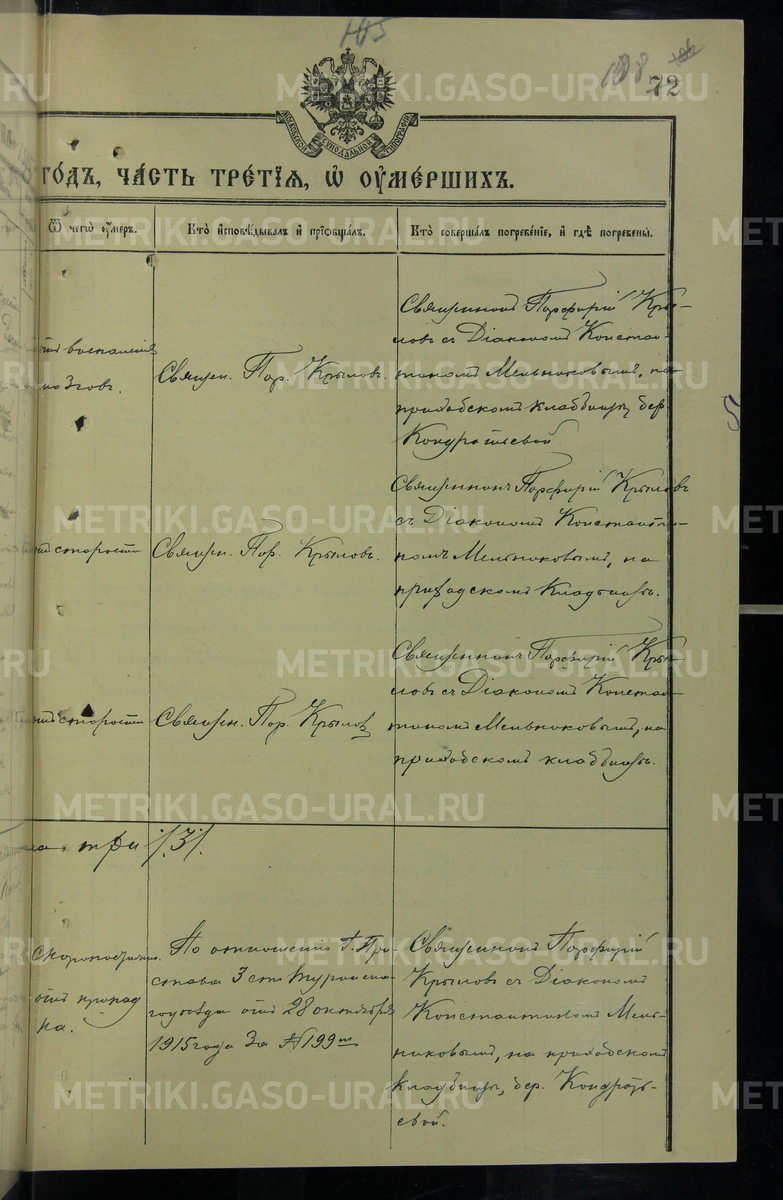 72
МОСКОВСКОЙ СѴНОДАЛЬНОЙ ТИПОГРАФІИ
ГОДЪ, ЧАСТЬ ТРЕТІЯ, Ѡ ОУМЕРШИХЪ.
Ѿ чегѡ оумеръ.
Кто исповѣдывалъ и пріобщалъ.
Кто совершалъ погребеніе, и гдѣ погребены.
отъ воспаленія
мозговъ.
Священ. Пор. Крыловъ.
Священникъ Порфирій Кры-
ловъ съ Діакономъ Констан-
тиномъ Мельниковымъ, на
приходскомъ кладбищѣ дер.
Кондратьевой.
старости
Священ. Пор. Крыловъ.
Священникъ Порфирій Крыловъ
съ Діакономъ Константи-
номъ Мельниковымъ, на
приходскомъ Кладбищѣ.
старости
Священ. Пор. Крыловъ
Священникъ Порфирій Кры-
ловъ съ Діакономъ Констан-
тиномъ Мельниковымъ, на
приходскомъ кладбищѣ.
три /3/.
Скоропостижно
отъ припад
ка.
По отношенію Г. При-
става 3 ст. Туринска-
го уѣзда отъ 28 октября
1915 года за №199
Священникъ Порфирій
Крыловъ съ Діакономъ
Константиномъ Мель-
никовымъ, на приходскомъ
кладбищѣ, дер. Кондрать-
евой.
METRIKI.GASO-URAL.RU